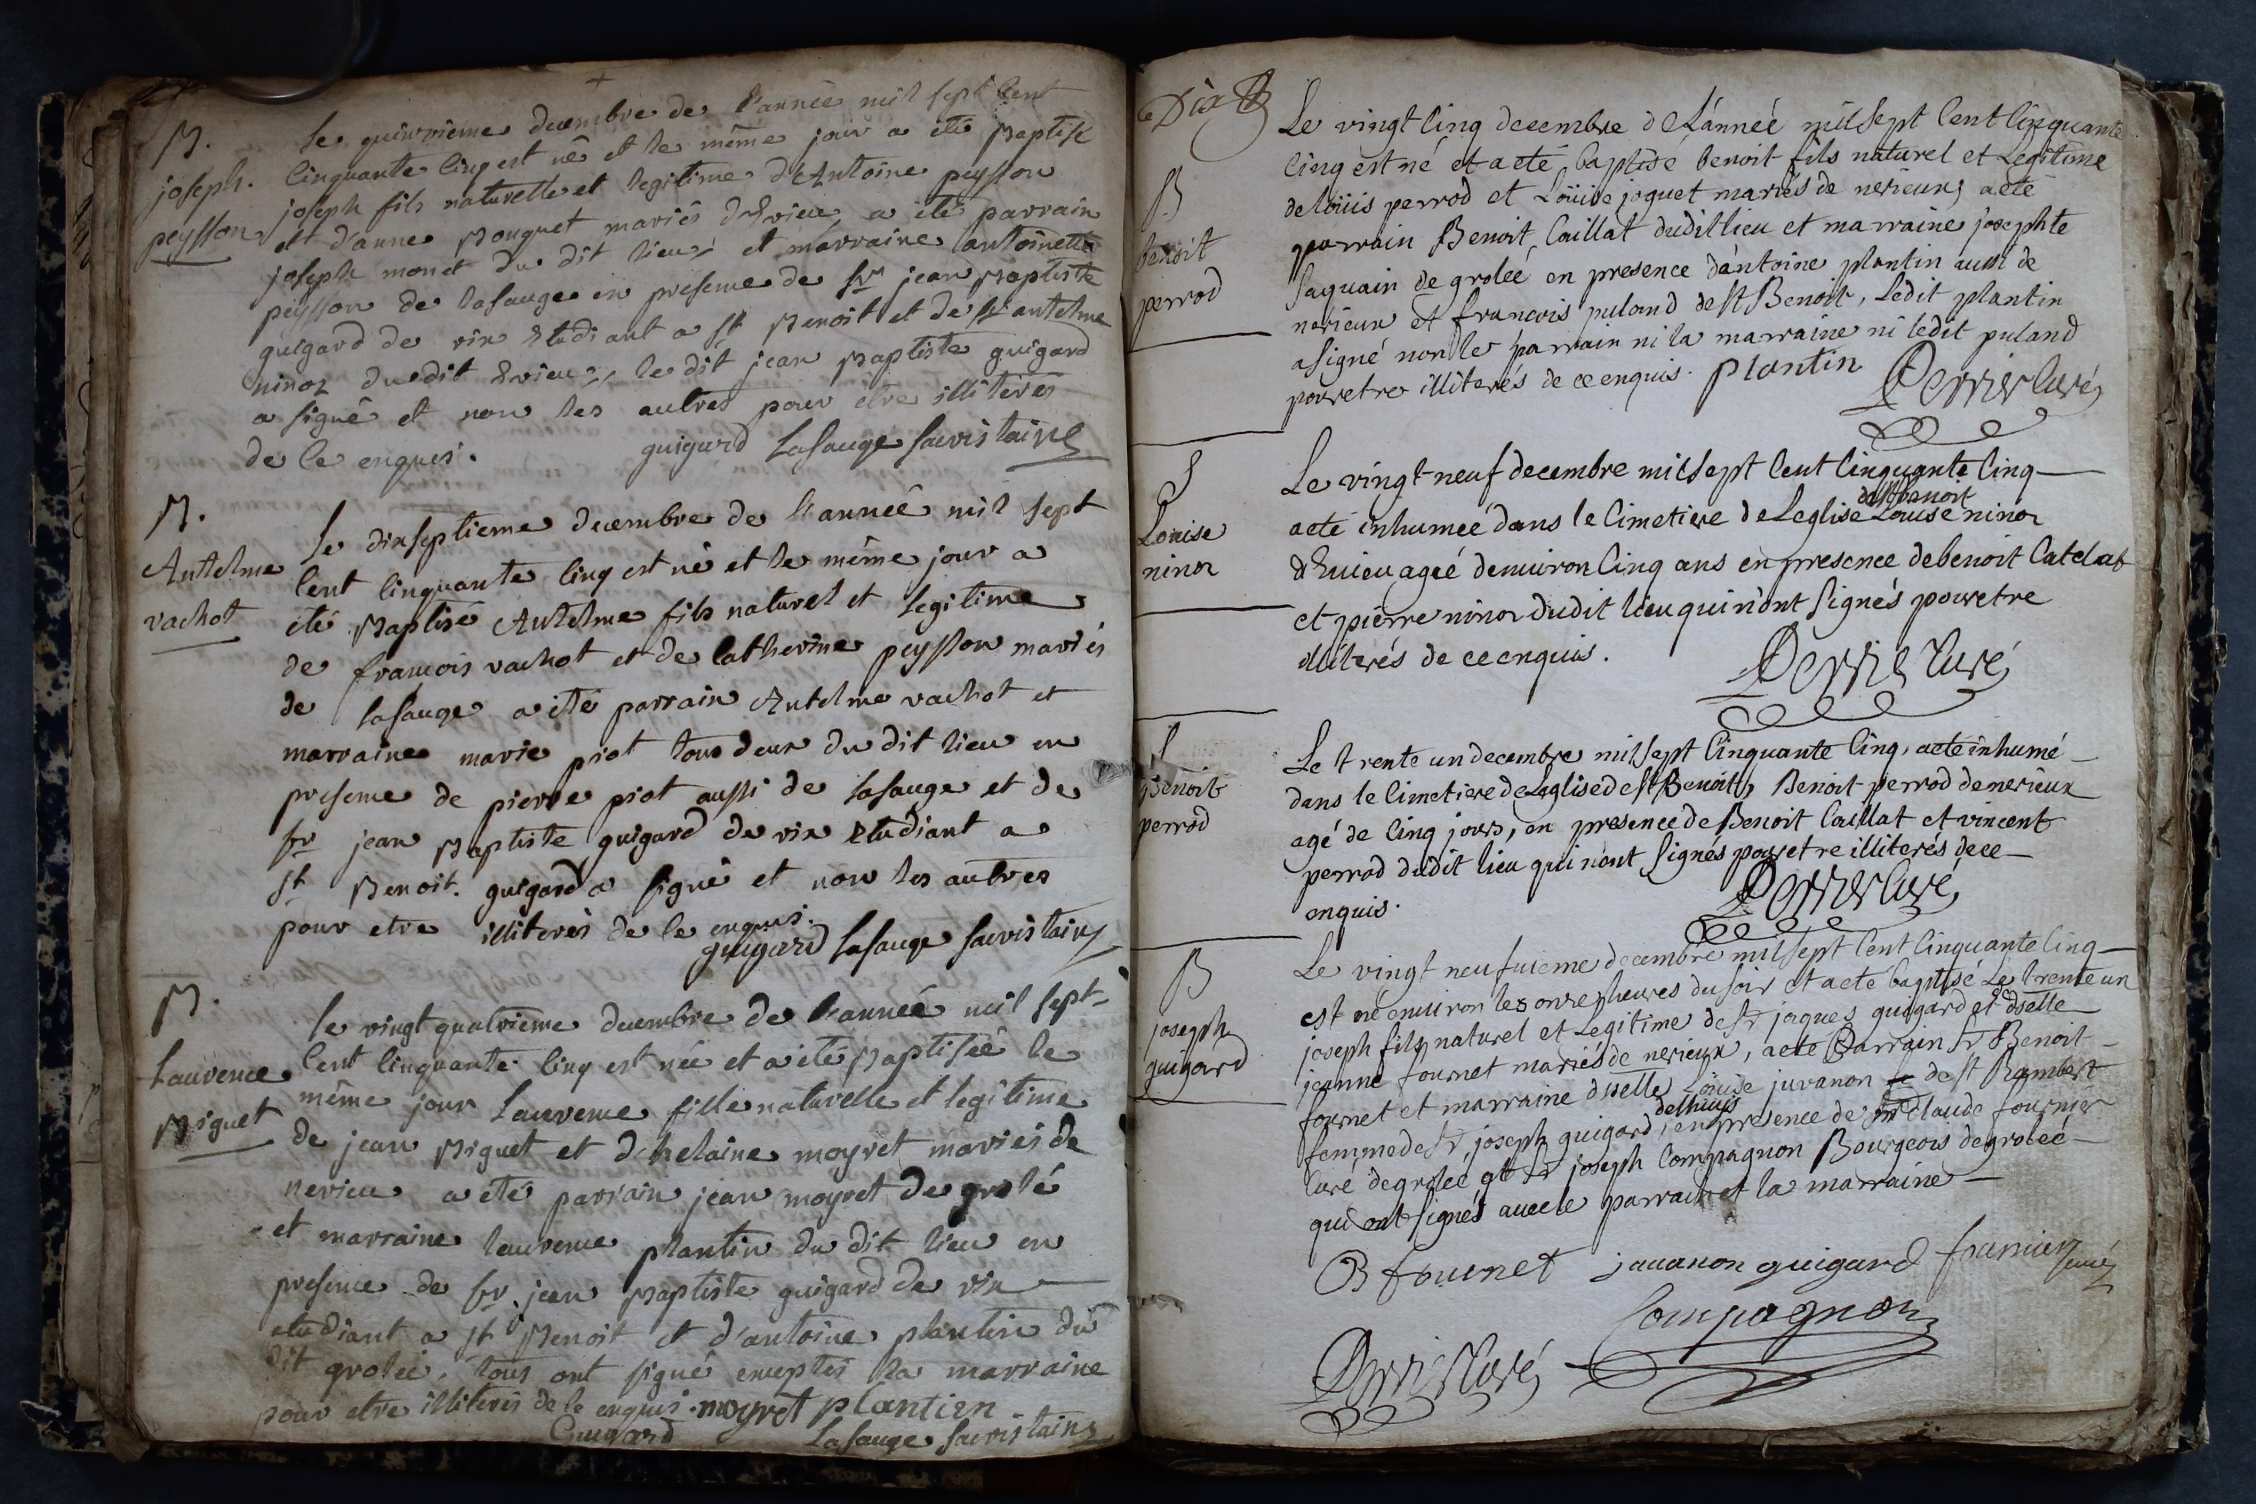 B.
joseph.
peysson
Le quinzieme decembre de l'année mil sept cent
cinquante cinq est né et le même jour a eté baptisé
joseph fils naturelle et legitime d'Antoine peysson
et d'anne bouquet mariés d'Evieu, a été parrain
joseph monet du dit lieu, et marraine antoinette
peysson de lasauge en presence de Sr jean baptiste
guigard de vix etudiant a st benoit et de st antelme
ninoz dudit Evieu, le dit jean baptiste guigard
a signé et non les autres pour etre illiterés
de ce enquis.
guigard Lasauge sacristain
B.
Antelme
vachot
Le dixseptieme decembre de l'année mil sept
cent cinquante cinq est né et le même jour a
eté baptisé Antelme fils naturel et legitime
de francois vachot et de catherine peysson mariés
de lasauge a eté parrain Antelme vachot et
marraine marie piot tous deux du dit lieu en
presence de pierre piot aussi de lasauge et de
sr jean baptiste guigard de vix etudiant a
st benoit. guigard a signé et non les autres
pour etre illiterés de ce enquis.
guigard lasauge sacristain
B.
Laurence
biguet
le vingt quatrieme decembre de l'année mil sept
cent cinquante cinq est née et a eté baptisée le
même jour Laurence fille naturelle et legitime
de jean biguet et d'helaine moyret mariés de
nerieu a eté parrain jean moyret de grolé
et marraine laurence plantin du dit lieu en
presence de sr jean baptiste guigard de vix
etudiant a st benoit et d'antoine plantin du
dit groleé, tous ont signé exceptés la marraine
pour etre illiterés de ce enquis. moyret plantien
Guigard Lasauge sacristain
Dix
B
benoit
perrod
Le vingt cinq decembre de L'année mil sept cent cinquante
cinq est né et a eté baptisé benoit fils naturel et Legitime
de loüis perrod et Loüise joguet mariés de nerieux, a eté
parrain Benoit Caillat dudit lieu et marraine josephte
saquain de groleé en presence d'antoine plantin aussi de
nerieux et francois puland de st Benoit, Ledit plantin
a signé non le parrain ni la marraine ni ledit puland
pour etre illiterés de ce enquis. plantin
Perrier Curé
S
Louise
ninoz
Le vingt neuf decembre mil sept cent cinquante cinq
a eté inhumeé dans le Cimetiere de Leglise de st benoit Louise ninoz
d'Evieu ageé denviron Cinq ans en presence de benoit Catelat
et pierre ninoz dudit lieu qui n'ont signés pour etre
illiterés de ce enquis.
Perrier Curé
S
Benoit
perrod
Le trente un decembre mil sept Cinquante Cinq, a eté inhumé
dans le Cimetiere de Leglise de st Benoit, Benoit perrod de nerieux
agé de Cinq jours, en presence de Benoit Caillat et vincent
perrod dudit lieu qui n'ont signés pour etre illiterés de ce
enquis.
Perrier Curé
B
joseph
guigard
Le vingt neufvieme decembre mil sept cent Cinquante Cinq
est né environ les onze heures du soir et a eté baptisé Le trente un
joseph fils naturel et Legitime de sr jaques guigard et de dselle
jeanne fournet mariés de nerieux, a eté Parrain sr Benoit
fournet et marraine dselle Loüise juvanon de st Rambert
femme de sr joseph guigard, delhuis en presence de Claude fournier
Curé de groleé et sr joseph Compagnon Bourgeois de groleé
qui ont signés avec le parrain et la marraine
B fournet javanon guigard fournier curé
Compagnon
Perrier Curé